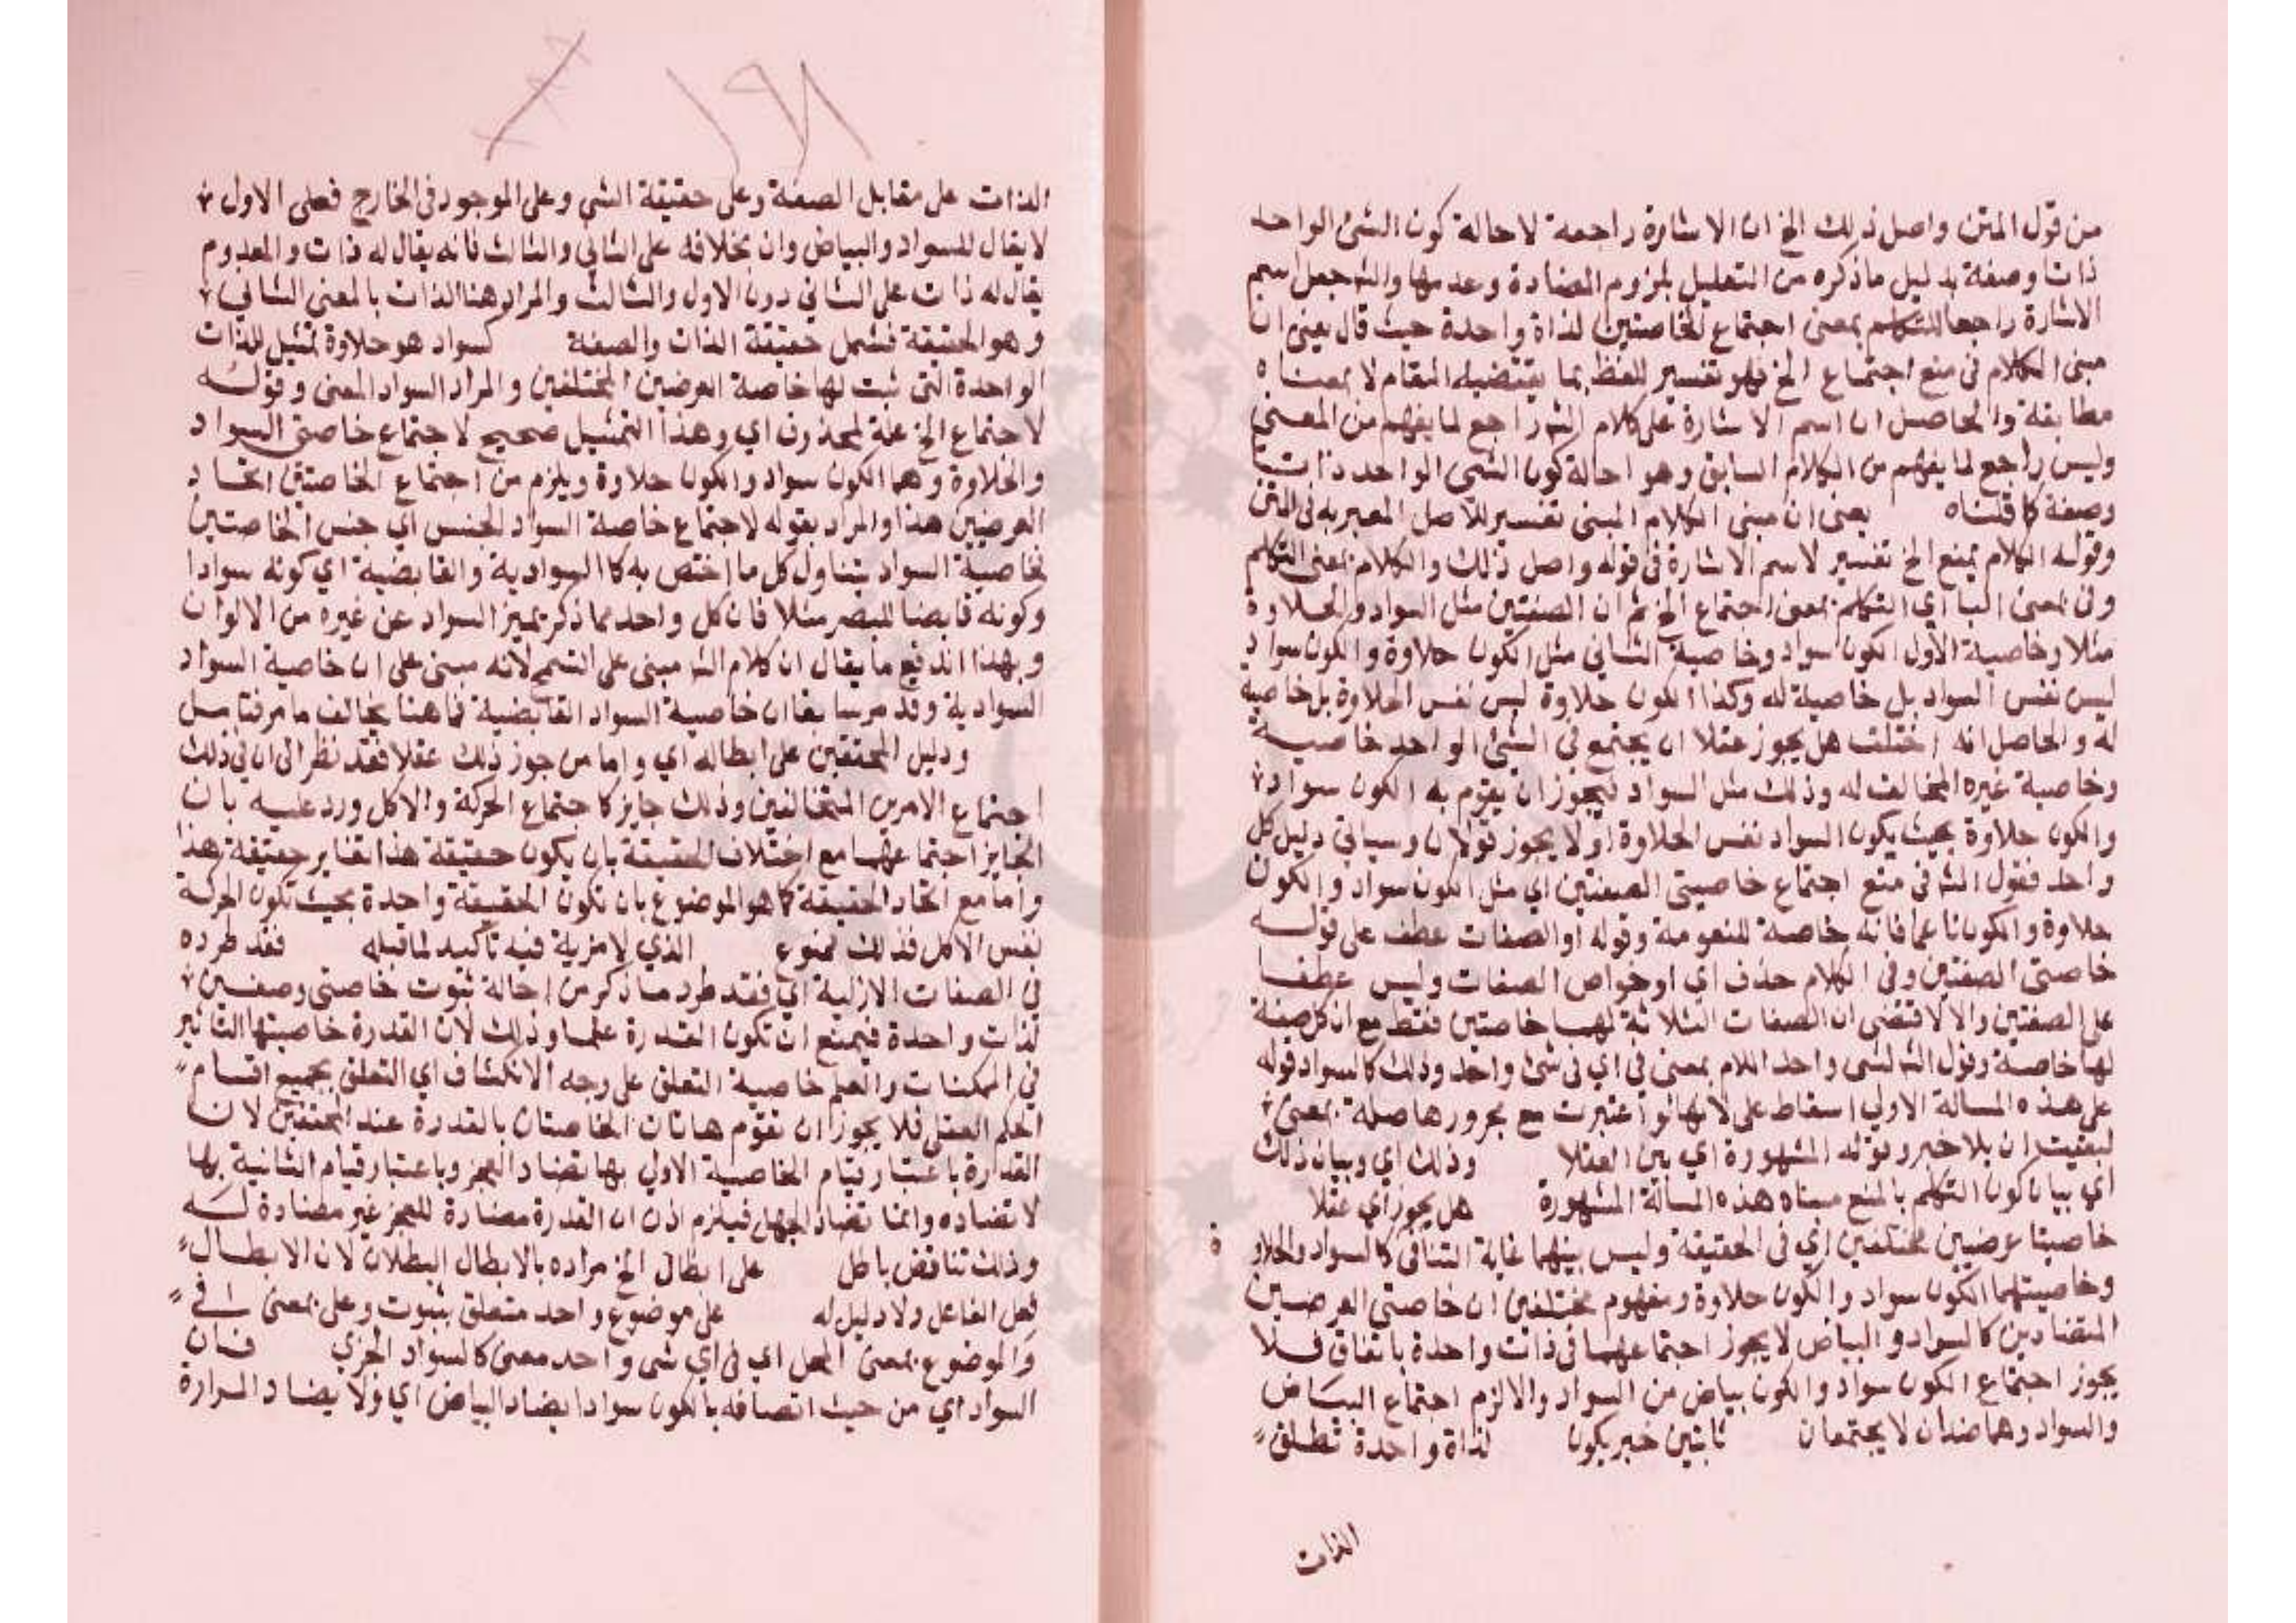 من قول المتن واصل ذلك الخ ان الاشارة راجعة لاحالة كون الشئ الواحد
ذات وصفة بدليل ماذكره من التعليل بلزوم المضادة وعدمها والش جعل اسم
الاشارة راجعا للتكلم بمعنى اجتماع الخاصتين لذاة واحدة حيث قال يعنى ان
مبنى الكلام فى منع اجتماع الخ فهو تفسير للفظ بما يقتضيه المقام لا بمعناه
مطابقة والحاصل ان اسم الاشارة على كلام الش راجع لما يفهم من المعنى
وليس راجع لما يفهم من الكلام السابق وهو احالة كون الشى الواحد ذات
وصفة كما قلناه يعنى ان مبنى الكلام المبنى تفسير للاصل المعبر به فى المتن
وقوله الكلام بمنع الخ تفسير لاسم الاشارة فى قوله واصل ذلك والكلام بمعنى التكلم
وفى بمعنى البا اي التكلم بمعنى اجتماع الخ ثم ان الصفتين مثل السواد والحلاوة
مثلا وخاصية الاول الكون سواد وخاصية الثانى مثل الكون حلاوة والكون سواد
ليس نفس السواد بل خاصية له وكذا الكون حلاوة ليس نفس الحلاوة بل خاصية
له والحاصل انه اختلف هل يجوز عقلا ان يجتمع فى الشئ الواحد خاصية
وخاصية غيره المخالف له وذلك مثل السواد فيجوز ان يقوم به الكون سواد
والكون حلاوة بحيث يكون السواد نفس الحلاوة او لا يجوز قولان وسياتى دليل كل
واحد فقول الش فى منع اجتماع خاصيتى الصفتين اي مثل الكون سواد والكون
حلاوة والكون ناعما فانه خاصة للنعومة وقوله او الصفات عطف على قوله
خاصتى الصفتين وفى الكلام حذف اي او خواص الصفات وليس عطف
على الصفتين والا لاقتضى ان الصفات الثلاثة لها خاصتين فقط مع ان كل صفة
لها خاصة وقول الش لشى واحد اللام بمعنى فى اي فى شئ واحد وذلك كالسواد قوله
على هذه المسالة الاولى اسقاط على لانها لو اعتبرت مع مجرورها صلة بمعنى
لبقيت ان بلا خبر وقوله المشهورة اي بين العقلا وذلك اي وبيان ذلك
اي بيان كون التكلم بالمنع مبناه هذه المسالة المشهورة هل يجوز اي عقلا
خاصيتا عرضيين مختلفين اي فى الحقيقة وليس بينهما غاية التنافى كالسواد والحلاوة
وخاصيتهما الكون سواد والكون حلاوة ومفهوم مختلفين ان خاصتى العرضين
المتضادين كالسواد والبياض لا يجوز اجتماعهما فى ذات واحدة باتفاق فلا
يجوز اجتماع الكون سواد والكون بياض من السواد والا لزم اجتماع البياض
والسواد وهما ضدان لا يجتمعان ثابتين خبر يكون لذاة واحدة تطلق
الذات
١٩٨
الذات على مقابل الصفة وعلى حقيقة الشى وعلى الموجود فى الخارج فعلى الاول
لا يقال للسواد والبياض وان بخلافه على الثانى والثالث فانه يقال له ذات والمعدوم
يقال له ذات على الثانى دون الاول والثالث والمراد هنا الذات بالمعنى الثانى
وهو الحقيقة فشمل حقيقة الذات والصفة كسواد هو حلاوة تمثيل للذات
الواحدة التى ثبت لها خاصة العرضين المختلفين والمراد السواد المعنى وقوله
لاجتماع الخ علة لمحذوف اي وهذا التمثيل صحيح لاجتماع خاصتى السواد
والحلاوة وهما الكون سواد والكون حلاوة ويلزم من اجتماع الخاصتين اتحاد
العرضين هذا والمراد بقوله لاجتماع خاصة السواد الجنس اي جنس الخاصتين
فخاصية السواد يتناول كل ما اختص به كالسوادية والقابضية اي كونه سوادا
وكونه قابضا للبصر مثلا فان كل واحد مما ذكر يميز السواد عن غيره من الالوان
وبهذا اندفع ما يقال ان كلام الش مبنى على التسمح لانه مبنى على ان خاصية السواد
السوادية وقد مر سابقا ان خاصية السواد القابضية فما هنا يخالف ما مر فتامل
ودليل المحققين على ابطاله اي واما من جوز ذلك عقلا فقد نظر الى ان فى ذلك
اجتماع الامرين المتخالفين وذلك جايز كاجتماع الحركة والاكل ورد عليه بان
الجايز اجتماعهما مع اختلاف الحقيقة بان يكون حقيقة هذا تغاير حقيقة هذا
واما مع اتحاد الحقيقة كما هو الموضوع بان تكون الحقيقة واحدة بحيث تكون الحركة
نفس الاكل فذلك ممنوع الذي لا مزية فيه تاكيد لما قبله فقد طرده
فى الصفات الازلية اي فقد طرد ما ذكر من احالة ثبوت خاصتى وصفين
لذات واحدة فيمنع ان تكون القدرة علما وذلك لان القدرة خاصيتها التاثير
فى الممكنات والعلم خاصية التعلق على وجه الانكشاف اي التعلق بجميع اقسام
الحكم العقلى فلا يجوز ان تقوم هاتان الخاصتان بالقدرة عند المحققين لان
القدرة باعتبار قيام الخاصية الاولى بها تضاد العجز وباعتبار قيام الثانية بها
لا تضاده وانما تضاد الجهل فيلزم اذن ان القدرة مضادة للعجز غير مضادة له
وذلك تناقض باطل على ابطال الخ مراده بالابطال البطلان لان الابطال
فعل الفاعل ولا دليل له على موضوع واحد متعلق بثبوت وعلى بمعنى فى
والموضوع بمعنى المحل اي فى اي شى واحد معنى كالسواد الجزي فان
السواد اي من حيث اتصافه بالكون سوادا يضاد البياض اي ولا يضاد المرارة